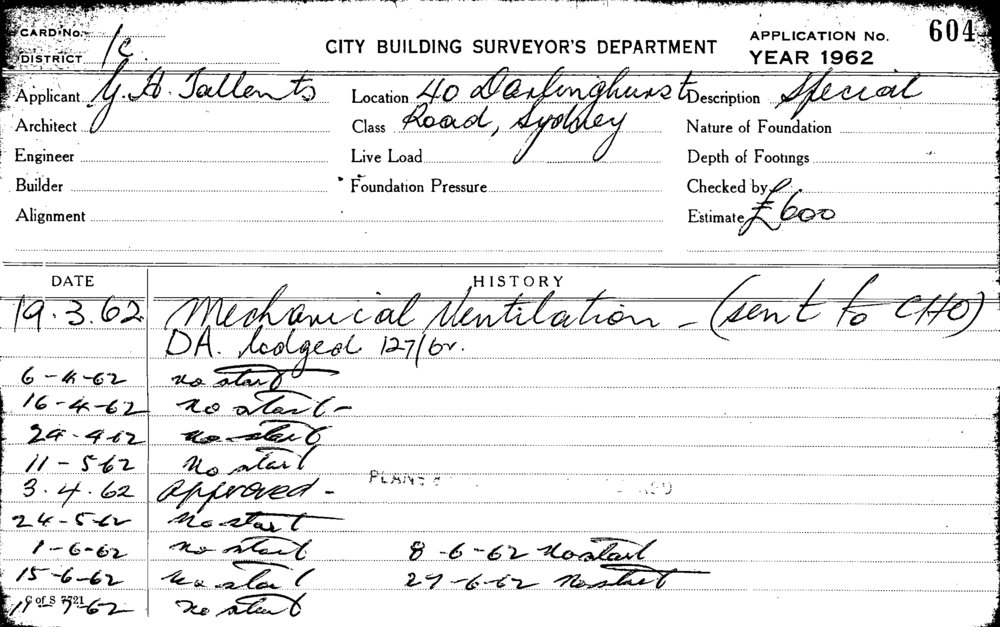 CARD No.
DISTRICT 1c
CITY BUILDING SURVEYOR'S DEPARTMENT
APPLICATION No. 604
YEAR 1962
Applicant Y. H. Tallents
Location 40 Darlinghurst
Description Special
Architect
Class Road, Sydney
Nature of Foundation
Engineer
Live Load
Depth of Footings
Builder
Foundation Pressure
Checked by
Alignment
Estimate £600
DATE HISTORY
19.3.62 Mechanical Ventilation - (sent to CHO)
DA. lodged 127/62.
6-4-62 no start
16-4-62 no start -
24-4-62 no start
11-5-62 No start
3.4.62 Approved - PLANS
24-5-62 No start
1-6-62 no start 8-6-62 No start
15-6-62 No start 27-6-62 No start
C of S 7721
19-7-62 No start